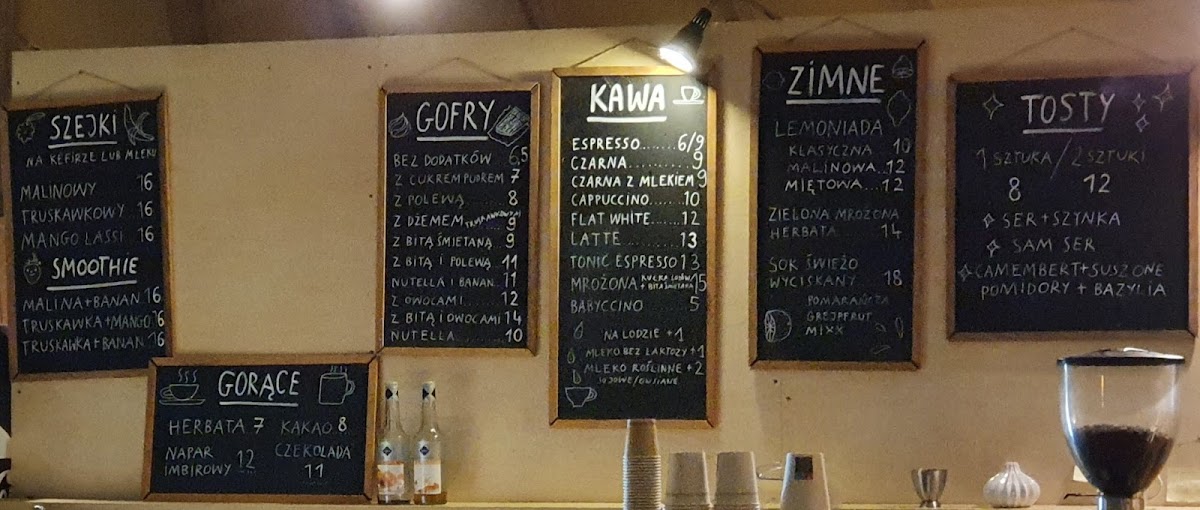 SZEJKI
NA KEFIRZE LUB MLEKU
MALINOWY 16
TRUSKAWKOWY 16
MANGO LASSI 16
SMOOTHIE
MALINA+BANAN 16
TRUSKAWKA+MANGO 16
TRUSKAWKA+BANAN 16
GORĄCE
HERBATA 7 KAKAO 8
NAPAR IMBIROWY 12 CZEKOLADA 11
GOFRY
BEZ DODATKÓW 6,5
Z CUKREM PUDREM 7
Z POLEWĄ..... 8
Z DŻEMEM TRUSKAWKOWYM 9
Z BITĄ ŚMIETANĄ 9
Z BITĄ I POLEWĄ... 11
NUTELLA I BANAN 11
Z OWOCAMI..... 12
Z BITĄ I OWOCAMI 14
NUTELLA..... 10
KAWA
ESPRESSO....... 6/9
CZARNA......... 9
CZARNA Z MLEKIEM 9
CAPPUCCINO..... 10
FLAT WHITE..... 12
LATTE.......... 13
TONIC ESPRESSO 13
MROŻONA KULKA LODÓW + BITA ŚMIETANA 15
BABYCCINO 5
NA LODZIE +1
MLEKO BEZ LAKTOZY +1
MLEKO ROŚLINNE +2
SOJOWE/OWSIANE
ZIMNE
LEMONIADA
KLASYCZNA 10
MALINOWA.. 12
MIĘTOWA... 12
ZIELONA MROŻONA
HERBATA 14
SOK ŚWIEŻO
WYCISKANY 18
POMARAŃCZA
GREJPFRUT
MIXX
TOSTY
1 SZTUKA / 2 SZTUKI
8 12
SER + SZYNKA
SAM SER
CAMEMBERT + SUSZONE
POMIDORY + BAZYLIA